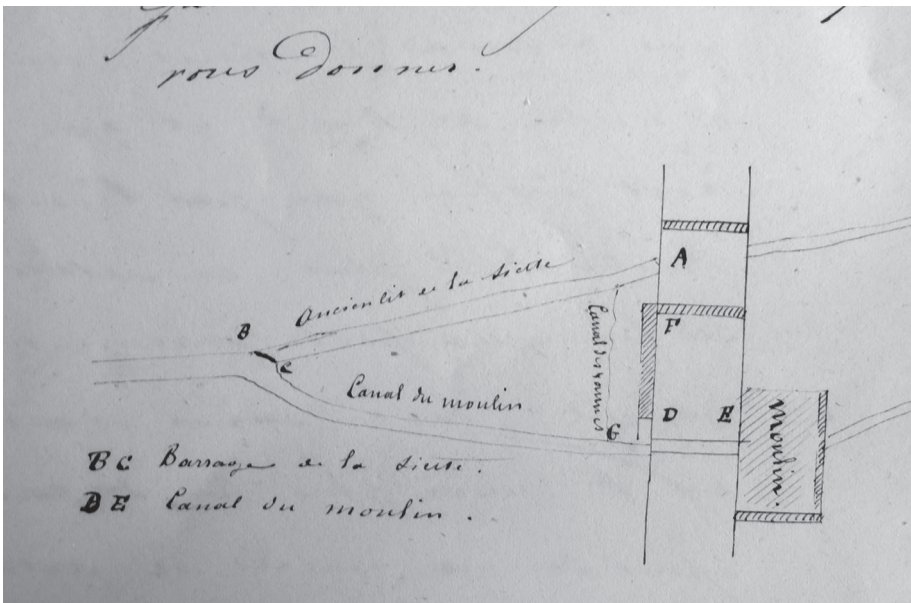 vous donner.
A
Ancien lit de la Sieste
B
F
C
Canal des vannes
Canal du moulin
D E
moulin
G
BC Barrage de la Sieste.
DE Canal du moulin.